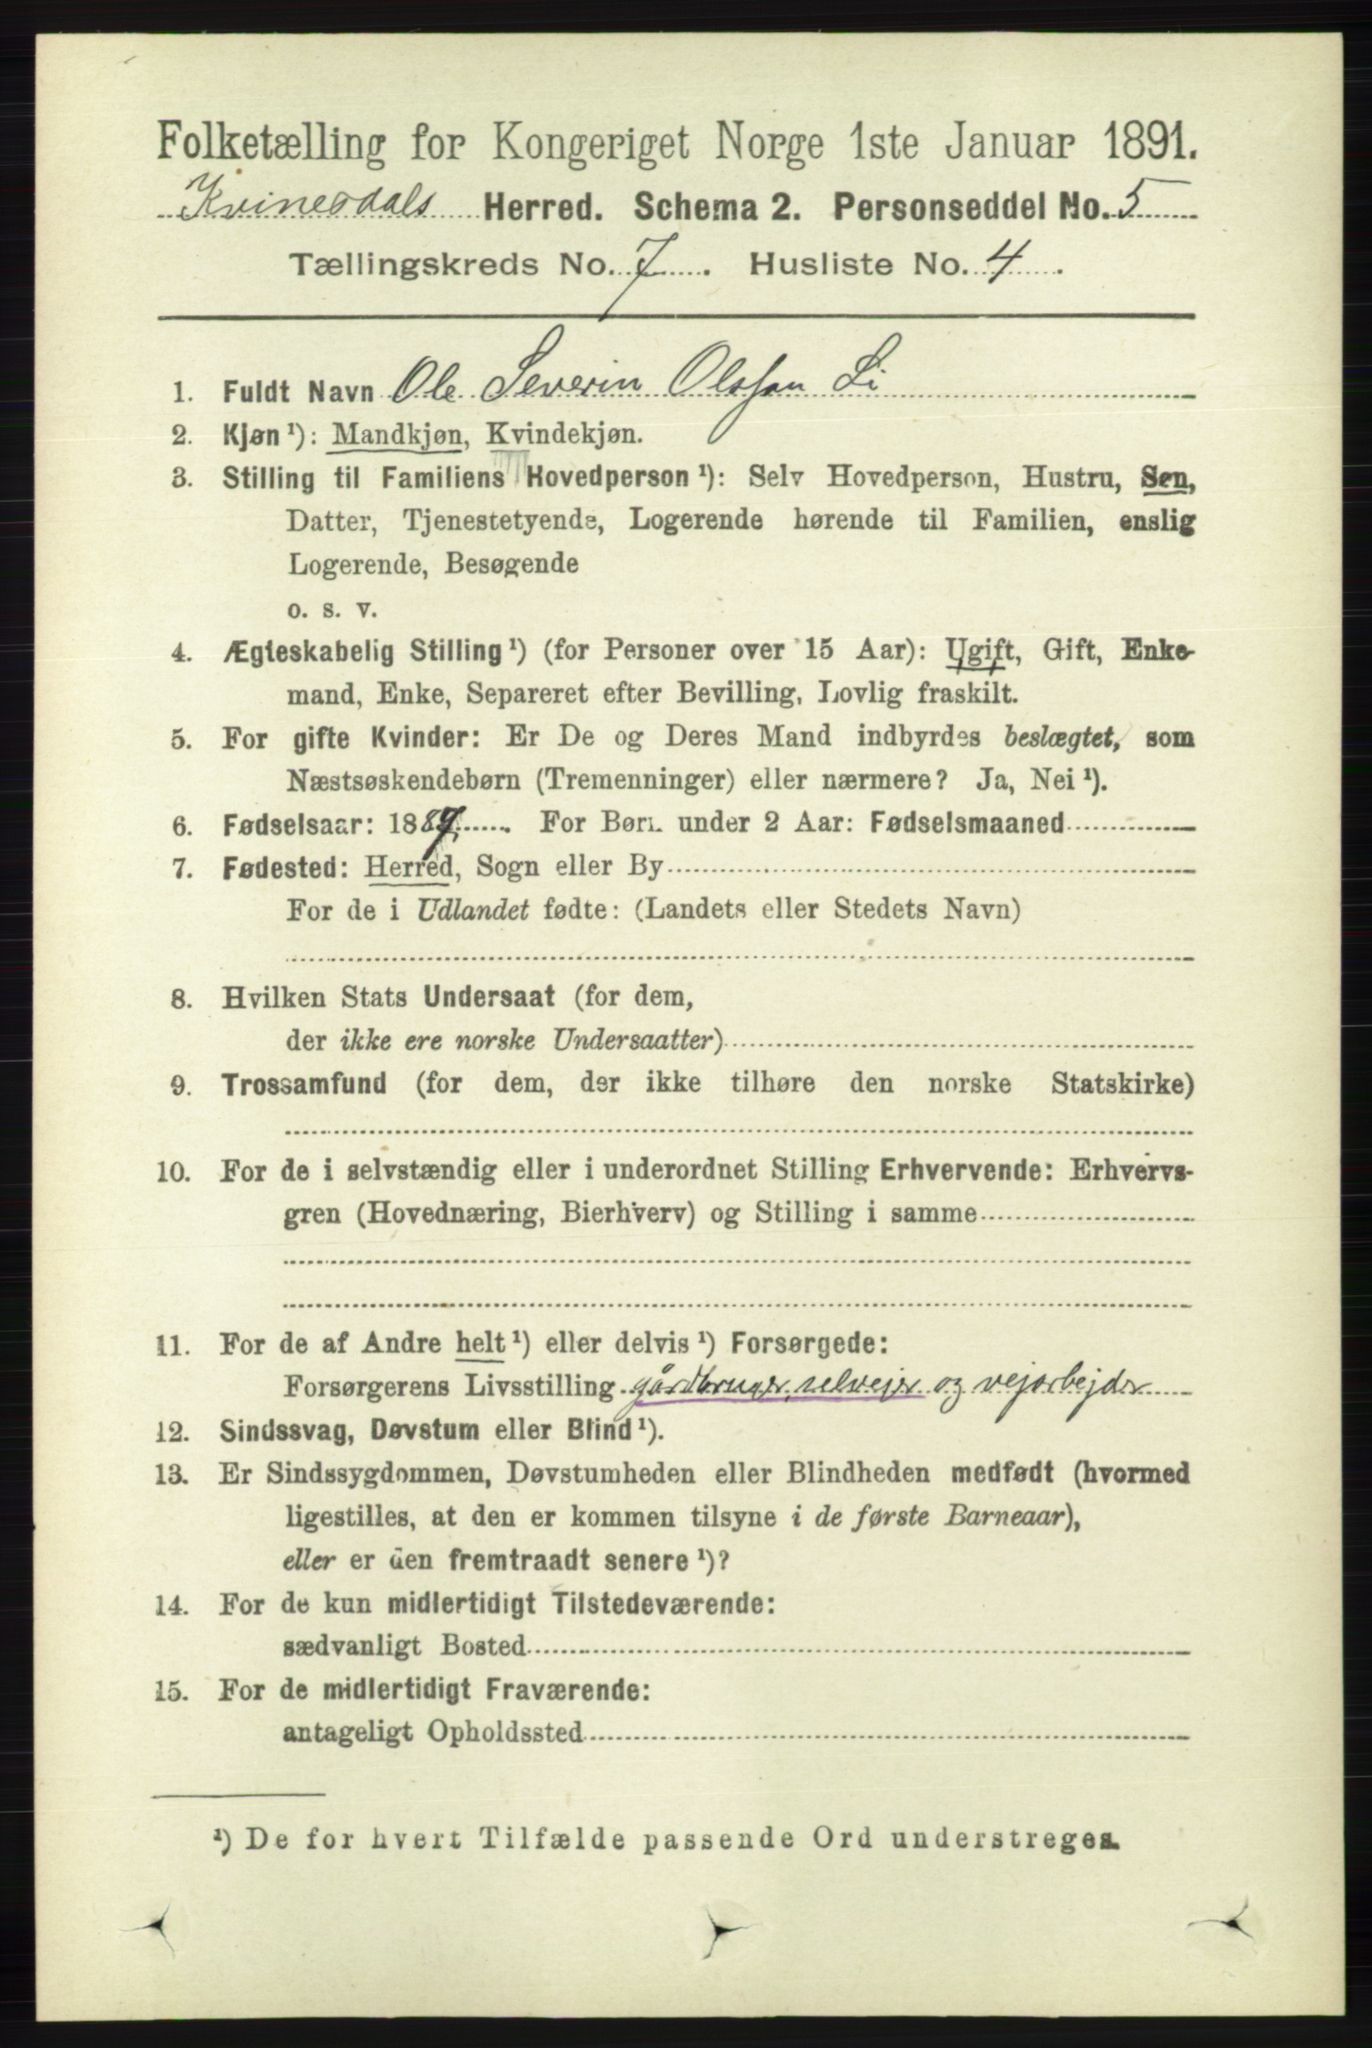 Folketælling for Kongeriget Norge 1ste Januar 1891.
Kvinesdals Herred. Schema 2. Personseddel No. 5
Tællingskreds No. 7. Husliste No. 4.
1. Fuldt Navn Ole Severin Olsson Li
2. Kjøn¹): Mandkjøn, Kvindekjøn.
3. Stilling til Familiens Hovedperson¹): Selv Hovedperson, Hustru, Søn,
Datter, Tjenestetyende, Logerende hørende til Familien, enslig
Logerende, Besøgende
o. s. v.
4. Ægteskabelig Stilling¹) (for Personer over 15 Aar): Ugift, Gift, Enke-
mand, Enke, Separeret efter Bevilling, Lovlig fraskilt.
5. For gifte Kvinder: Er De og Deres Mand indbyrdes beslægtet, som
Næstsøskendebørn (Tremenninger) eller nærmere? Ja, Nei¹).
6. Fødselsaar: 1887. For Børn under 2 Aar: Fødselsmaaned
7. Fødested: Herred, Sogn eller By
For de i Udlandet fødte: (Landets eller Stedets Navn)
8. Hvilken Stats Undersaat (for dem,
der ikke ere norske Undersaatter)
9. Trossamfund (for dem, der ikke tilhøre den norske Statskirke)
10. For de i selvstændig eller i underordnet Stilling Erhvervende: Erhvervs-
gren (Hovednæring, Bierhverv) og Stilling i samme
11. For de af Andre helt¹) eller delvis¹) Forsørgede:
Forsørgerens Livsstilling gårdbruger, selvejer og vejarbejder
12. Sindssvag, Døvstum eller Blind¹).
13. Er Sindssygdommen, Døvstumheden eller Blindheden medfødt (hvormed
ligestilles, at den er kommen tilsyne i de første Barneaar),
eller er den fremtraadt senere¹)?
14. For de kun midlertidigt Tilstedeværende:
sædvanligt Bosted
15. For de midlertidigt Fraværende:
antageligt Opholdssted
¹) De for hvert Tilfælde passende Ord understreges.